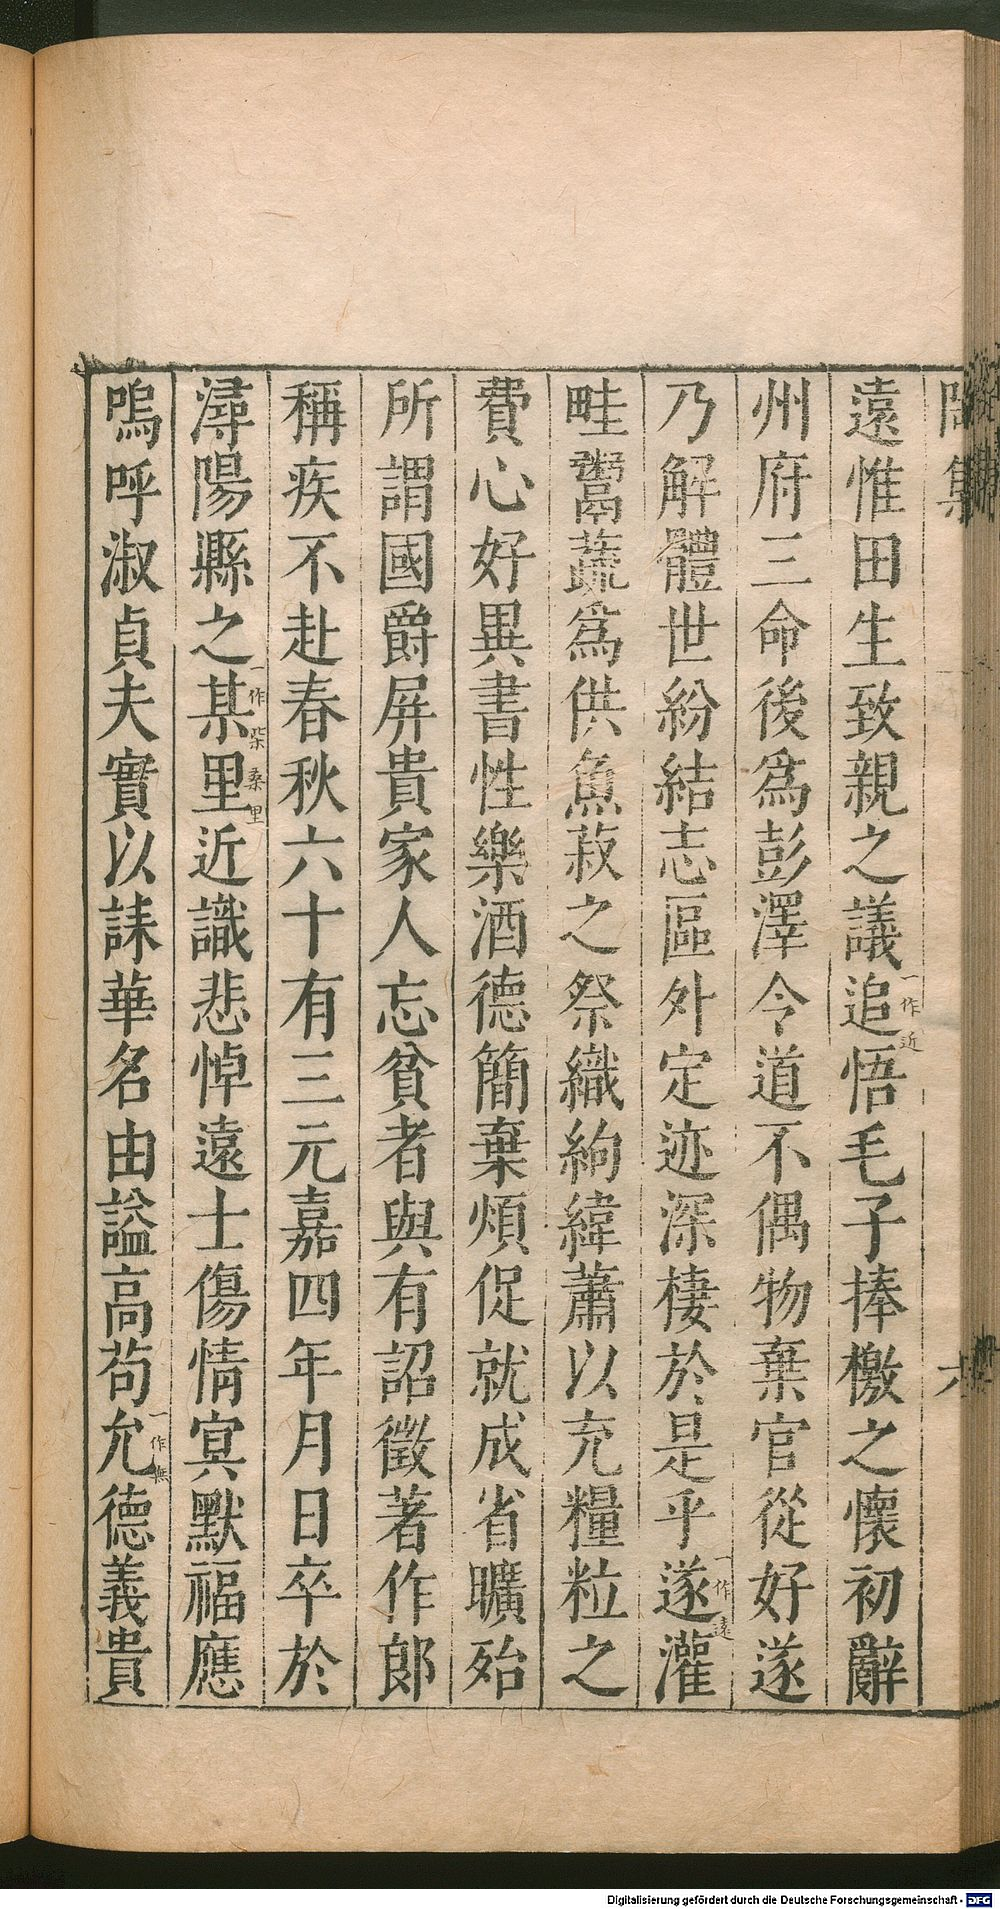 陶集
六
遠惟田生致親之議追一作近悟毛子捧檄之懷初辭
州府三命後爲彭澤令道不偶物棄官從好遂
乃解體世紛結志區外定迹深棲於是乎遂一作遠灌
畦鬻蔬爲供魚菽之祭織絇緯蕭以充糧粒之
費心好異書性樂酒德簡棄煩促就成省曠殆
所謂國爵屏貴家人忘貧者與有詔徵著作郎
稱疾不赴春秋六十有三元嘉四年月日卒於
潯陽縣之某里一作柴桑里近識悲悼遠士傷情冥默福應
嗚呼淑貞夫實以誄華名由諡高苟允一作無德義貴
Digitalisierung gefördert durch die Deutsche Forschungsgemeinschaft - DFG